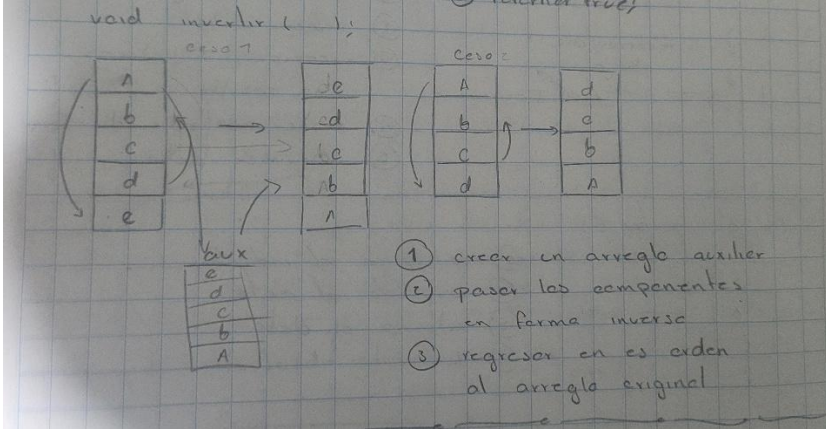 retornar true;
void invertir ( );
caso 1
A
b
c
d
e
e
d
c
b
A
aux
e
d
c
b
A
caso 2
A
b
c
d
d
c
b
A
① crear un arreglo auxiliar
② pasar los componentes
en forma inversa
③ regresar en es orden
al arreglo original